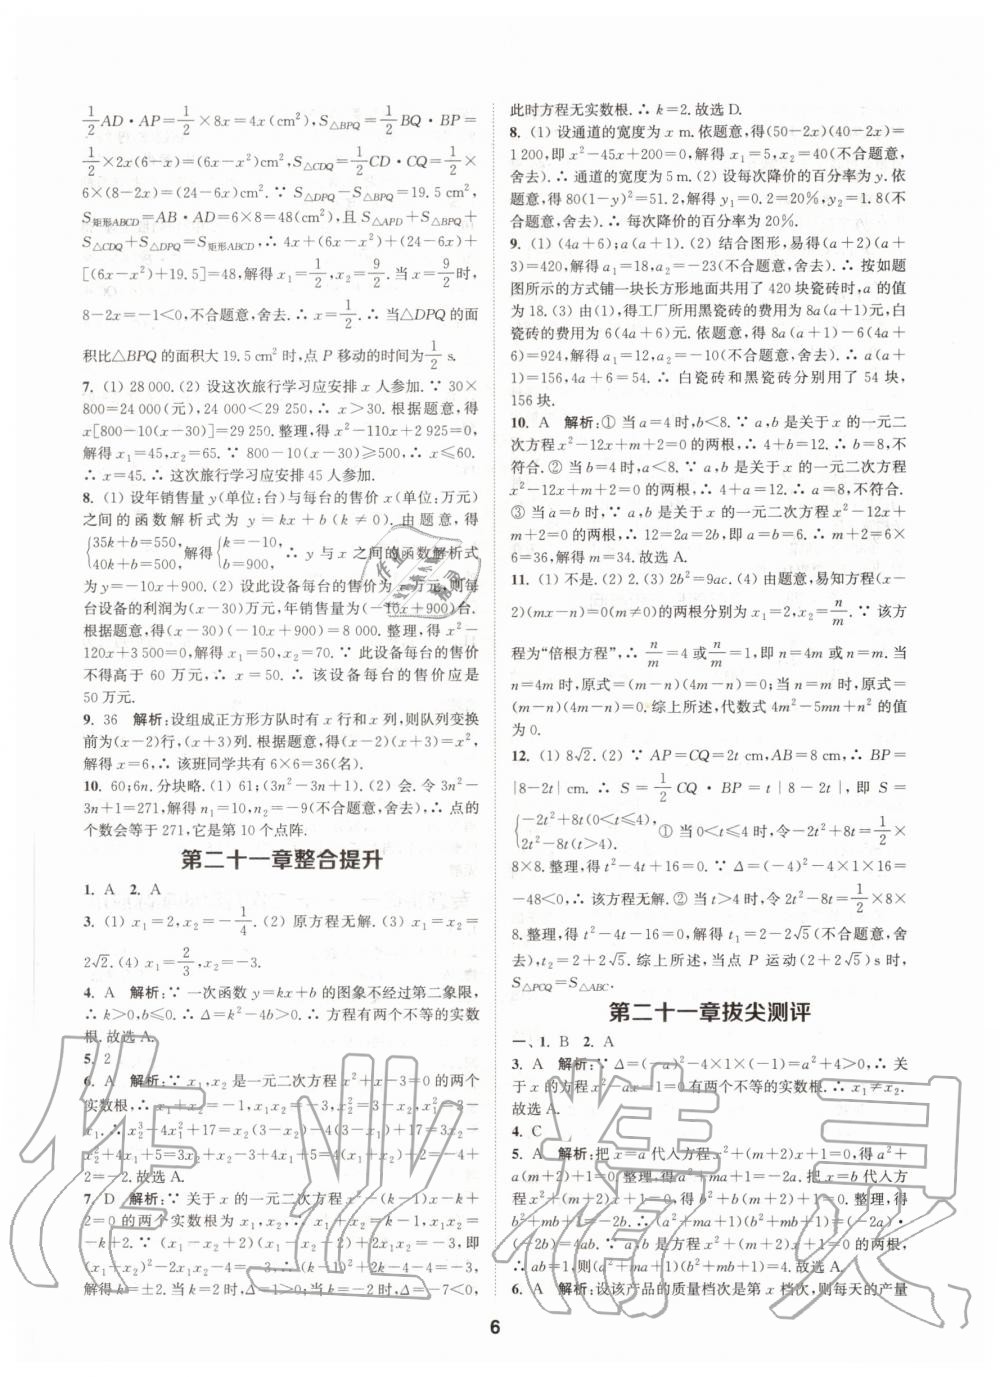 1/2 AD·AP=1/2×8x=4x(cm²),S△BPQ=1/2 BQ·BP=
1/2×2x(6-x)=(6x-x²)cm²,S△CDQ=1/2 CD·CQ=1/2×
6×(8-2x)=(24-6x)cm².∵ S△DPQ-S△BPQ=19.5 cm²,
S矩形ABCD=AB·AD=6×8=48(cm²),且 S△APD+S△BPQ+
S△CDQ+S△DPQ=S矩形ABCD,∴ 4x+(6x-x²)+(24-6x)+
[(6x-x²)+19.5]=48,解得 x₁=1/2,x₂=9/2.当 x=9/2时,
8-2x=-1<0,不合题意,舍去.∴ x=1/2.∴ 当△DPQ 的面
积比△BPQ 的面积大 19.5 cm² 时,点 P 移动的时间为1/2 s.
7. (1) 28 000. (2) 设这次旅行学习应安排 x 人参加.∵ 30×
800=24 000(元),24 000<29 250,∴ x>30.根据题意,得
x[800-10(x-30)]=29 250.整理,得 x²-110x+2 925=0,
解得 x₁=45,x₂=65.∵ 800-10(x-30)≥500,∴ x≤60.
∴ x=45.∴ 这次旅行学习应安排 45 人参加.
8. (1) 设年销售量 y(单位:台)与每台的售价 x(单位:万元)
之间的函数解析式为 y=kx+b(k≠0).由题意,得
{35k+b=550, 40k+b=600, 解得{k=-10, b=900. ∴ y 与 x 之间的函数解析式
为 y=-10x+900. (2) 设此设备每台的售价为 x 万元,则每
台设备的利润为(x-30)万元,年销售量为(-10x+900)台.
根据题意,得(x-30)(-10x+900)=8 000.整理,得 x²-
120x+3500=0,解得 x₁=50,x₂=70.∵ 此设备每台的售价
不得高于 60 万元,∴ x=50.∴ 该设备每台的售价应是
50 万元.
9. 36 解析:设组成正方形方队时有 x 行和 x 列,则队列变换
前为(x-2)行,(x+3)列.根据题意,得(x-2)(x+3)=x²,
解得 x=6.∴ 该班同学共有 6×6=36(名).
10. 60;6n.分块略. (1) 61;(3n²-3n+1). (2) 会.令 3n²-
3n+1=271,解得 n₁=10,n₂=-9(不合题意,舍去),∴ 点的
个数会等于 271,它是第 10 个点阵.
第二十一章整合提升
1. A 2. A
3. (1) x₁=2,x₂=-1/4. (2) 原方程无解. (3) x₁=x₂=
2√2. (4) x₁=2/3,x₂=-3.
4. A 解析:∵ 一次函数 y=kx+b 的图象不经过第二象限,
∴ k>0,b≤0.∴ Δ=k²-4b>0.∴ 方程有两个不等的实数
根.故选 A.
5. 2
6. A 解析:∵ x₁,x₂是一元二次方程 x²+x-3=0 的两个
实数根,∴ x₁+x₂=-1,x₁x₂=-3,x₂²=3-x₂,x₁²=3-
x₁.∴ x₂³-4x₁²+17=x₂(3-x₂)-4(3-x₁)+17=3x₂-
x₂²+4x₁+5=3x₂-(3-x₂)+4x₁+5=4(x₁+x₂)+
2=-2.故选 A.
7. D 解析:∵ 关于 x 的一元二次方程 x²-(k-1)x-k+
2=0 的两个实数根为 x₁,x₂,∴ x₁+x₂=k-1,x₁x₂=
-k+2.∵ (x₁-x₂+2)(x₁-x₂-2)+2x₁x₂=-3,即
(x₁-x₂)²-2x₁x₂-4=-3,∴ (k-1)²+2k-4-4=-3,
解得 k=±2.当 k=2 时,Δ=1>0;当 k=-2 时,Δ=-7<0,
此时方程无实数根.∴ k=2.故选 D.
8. (1) 设通道的宽度为 x m.依题意,得(50-2x)(40-2x)=
1 200,即 x²-45x+200=0,解得 x₁=5,x₂=40(不合题意,
舍去).∴ 通道的宽度为 5 m. (2) 设每次降价的百分率为 y.依
题意,得 80(1-y)²=51.2,解得 y₁=0.2=20%,y₂=1.8(不
合题意,舍去).∴ 每次降价的百分率为 20%.
9. (1) (4a+6);a(a+1). (2) 结合图形,易得(a+2)(a+
3)=420,解得 a₁=18,a₂=-23(不合题意,舍去).∴ 按如题
图所示的方式铺一块长方形地面共用了 420 块瓷砖时,a 的值
为 18. (3) 由(1),得工厂所用黑瓷砖的费用为 8a(a+1)元,白
瓷砖的费用为 6(4a+6)元.依题意,得 8a(a+1)-6(4a+
6)=924,解得 a₁=12,a₂=-10(不合题意,舍去).∴ a(a+
1)=156,4a+6=54.∴ 白瓷砖和黑瓷砖分别用了 54 块,
156 块.
10. A 解析:① 当 a=4 时,b<8.∵ a,b 是关于 x 的一元二
次方程 x²-12x+m+2=0 的两根,∴ 4+b=12.∴ b=8,不
符合.② 当 b=4 时,a<8.∵ a,b 是关于 x 的一元二次方程
x²-12x+m+2=0 的两根,∴ 4+a=12.∴ a=8,不符合.
③ 当 a=b 时,∵ a,b 是关于 x 的一元二次方程 x²-12x+
m+2=0 的两根,∴ 12=a+b,即 a=b=6.∴ m+2=6×
6=36,解得 m=34.故选 A.
11. (1) 不是. (2) 2. (3) 2b²=9ac. (4) 由题意,易知方程(x-
2)(mx-n)=0(m≠0)的两根分别为 x₁=2,x₂=n/m.∵ 该方
程为“倍根方程”,∴ n/m=4 或n/m=1,即 n=4m 或 n=m.当
n=4m 时,原式=(m-n)(4m-n)=0;当 n=m 时,原式=
(m-n)(4m-n)=0.综上所述,代数式 4m²-5mn+n² 的值
为 0.
12. (1) 8√2. (2) ∵ AP=CQ=2t cm,AB=8 cm,∴ BP=
|8-2t| cm.∴ S=1/2 CQ·BP=t|8-2t|,即 S=
{-2t²+8t(0<t≤4), 2t²-8t(t>4). ① 当 0<t≤4 时,-2t²+8t=1/2×
8×8.整理,得 t²-4t+16=0.∵ Δ=(-4)²-4×1×16=
-48<0,∴ 该方程无解.② 当 t>4 时,2t²-8t=1/2×8×
8.整理,得 t²-4t-16=0,解得 t₁=2-2√5(不合题意,舍
去),t₂=2+2√5.综上所述,当点 P 运动(2+2√5)s 时,
S△PCQ=S△ABC.
第二十一章拔尖测评
一、1. B 2. A
3. A 解析:∵ Δ=(-a)²-4×1×(-1)=a²+4>0,∴ 关
于 x 的方程 x²-ax-1=0 有两个不等的实数根.∴ x₁≠x₂.
故选 A.
4. C
5. A 解析:把 x=a 代入方程 x²+(m+2)x+1=0,得 a²+
a(m+2)+1=0.整理,得 a²+ma+1=-2a.把 x=b 代入方
程 x²+(m+2)x+1=0,得 b²+b(m+2)+1=0.整理,得
b²+mb+1=-2b.∴ (a²+ma+1)(b²+mb+1)=(-2a)·
(-2b)=4ab.∵ a,b 是方程 x²+(m+2)x+1=0 的两根,
∴ ab=1,则(a²+ma+1)(b²+mb+1)=4.故选 A.
6. A 解析:设该产品的质量档次是第 x 档次,则每天的产量
6
作业精灵